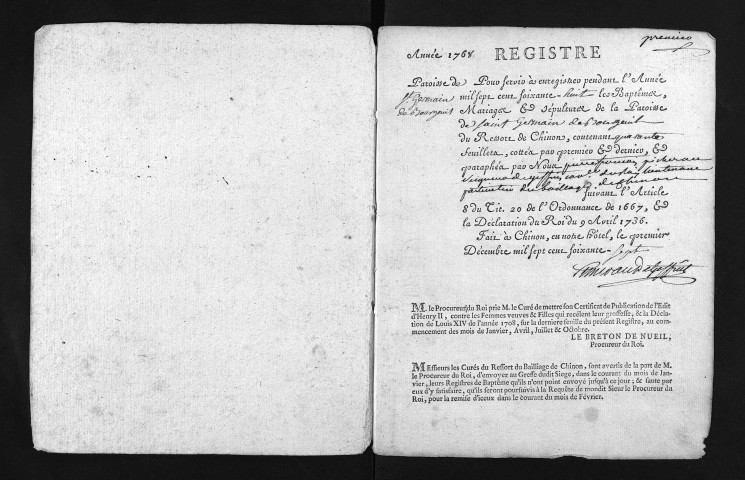 premier
Année 1768. REGISTRE
Paroisse de
St Germain
de Bourgueil
Pour servir à enregistrer pendant l'Année
mil sept cent soixante-huit les Baptêmes,
Mariages & Sépultures de la Paroisse
de Saint Germain de Bourgueil
du Ressort de Chinon, contenant quarante
feuillets, cottés par premier & dernier, &
paraphés par Nous pierre
lieutenant
particulier du bailliage de chinon
suivant l'Article
8 du Tit. 20 de l'Ordonnance de 1667, &
la Déclaration du Roi du 9 Avril 1736.
Fait à Chinon, en notre hôtel, le premier
Décembre mil sept cent soixante-sept
M. le Procureur du Roi prie M. le Curé de mettre son Certificat de Publication de l'Edit
d'Henry II, contre les Femmes veuves & Filles qui recèlent leur grossesse, & la Décla-
tion de Louis XIV de l'année 1708, sur la derniere feuille du présent Registre, au com-
mencement des mois de Janvier, Avril, Juillet & Octobre.
LE BRETON DE NUEIL,
Procureur du Roi.
MEssieurs les Curés du Ressort du Bailliage de Chinon, sont avertis de la part de M.
le Procureur du Roi, d'envoyer au Greffe dudit Siege, dans le courant du mois de Jan-
vier, leurs Registres de Baptême qu'ils n'ont point envoyé jusqu'à ce jour; & faute par
eux d'y satisfaire, qu'ils seront poursuivis à la Requête de mondit Sieur le Procureur du
Roi, pour la remise d'iceux dans le courant du mois de Février.